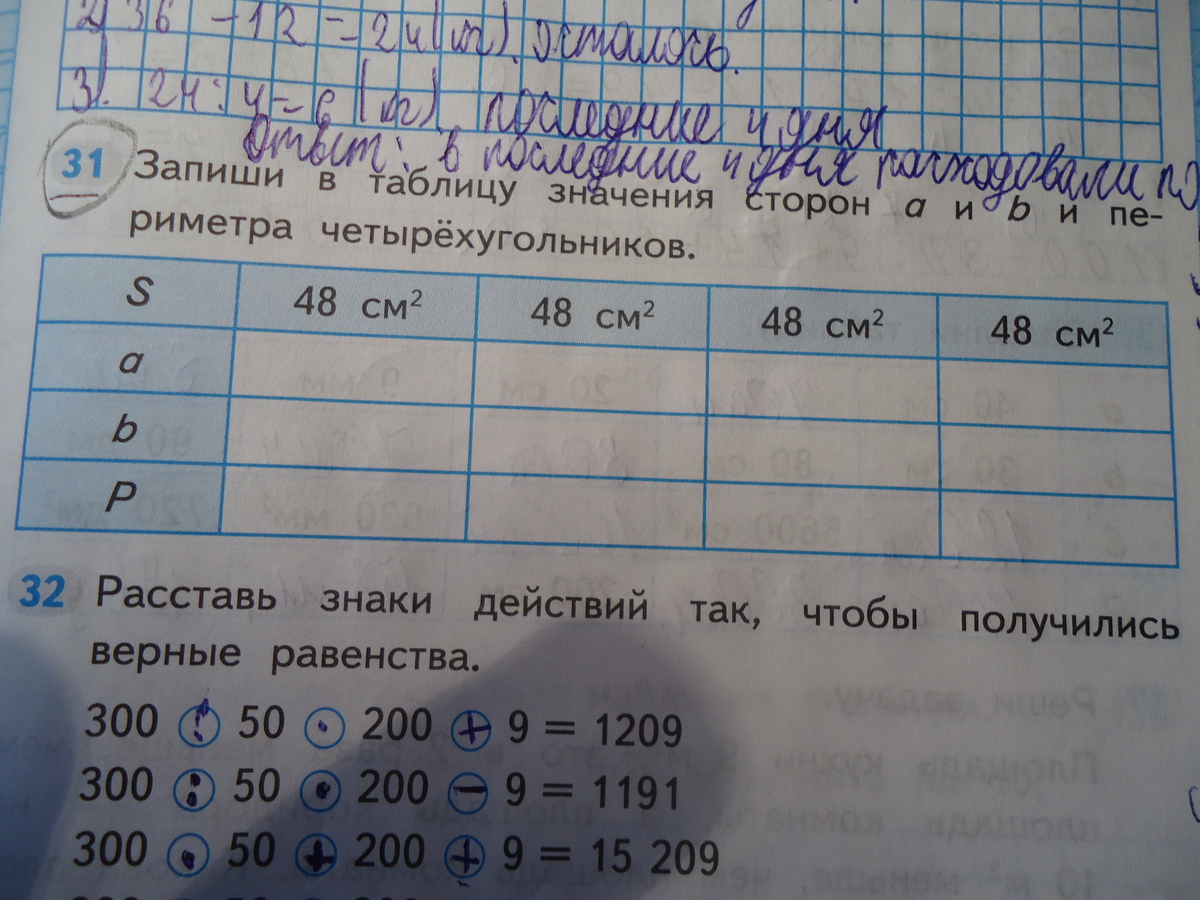 2) 36 - 12 = 24 (т). осталось.
3). 24 : 4 = 6 (т). последние 4 дня
Ответ: в последние 4 дня расходовали по
31 Запиши в таблицу значения сторон a и b и пе-
риметра четырёхугольников.
S 48 см² 48 см² 48 см² 48 см²
a
b
P
32 Расставь знаки действий так, чтобы получились
верные равенства.
300 : 50 · 200 + 9 = 1209
300 : 50 · 200 − 9 = 1191
300 · 50 + 200 + 9 = 15 209